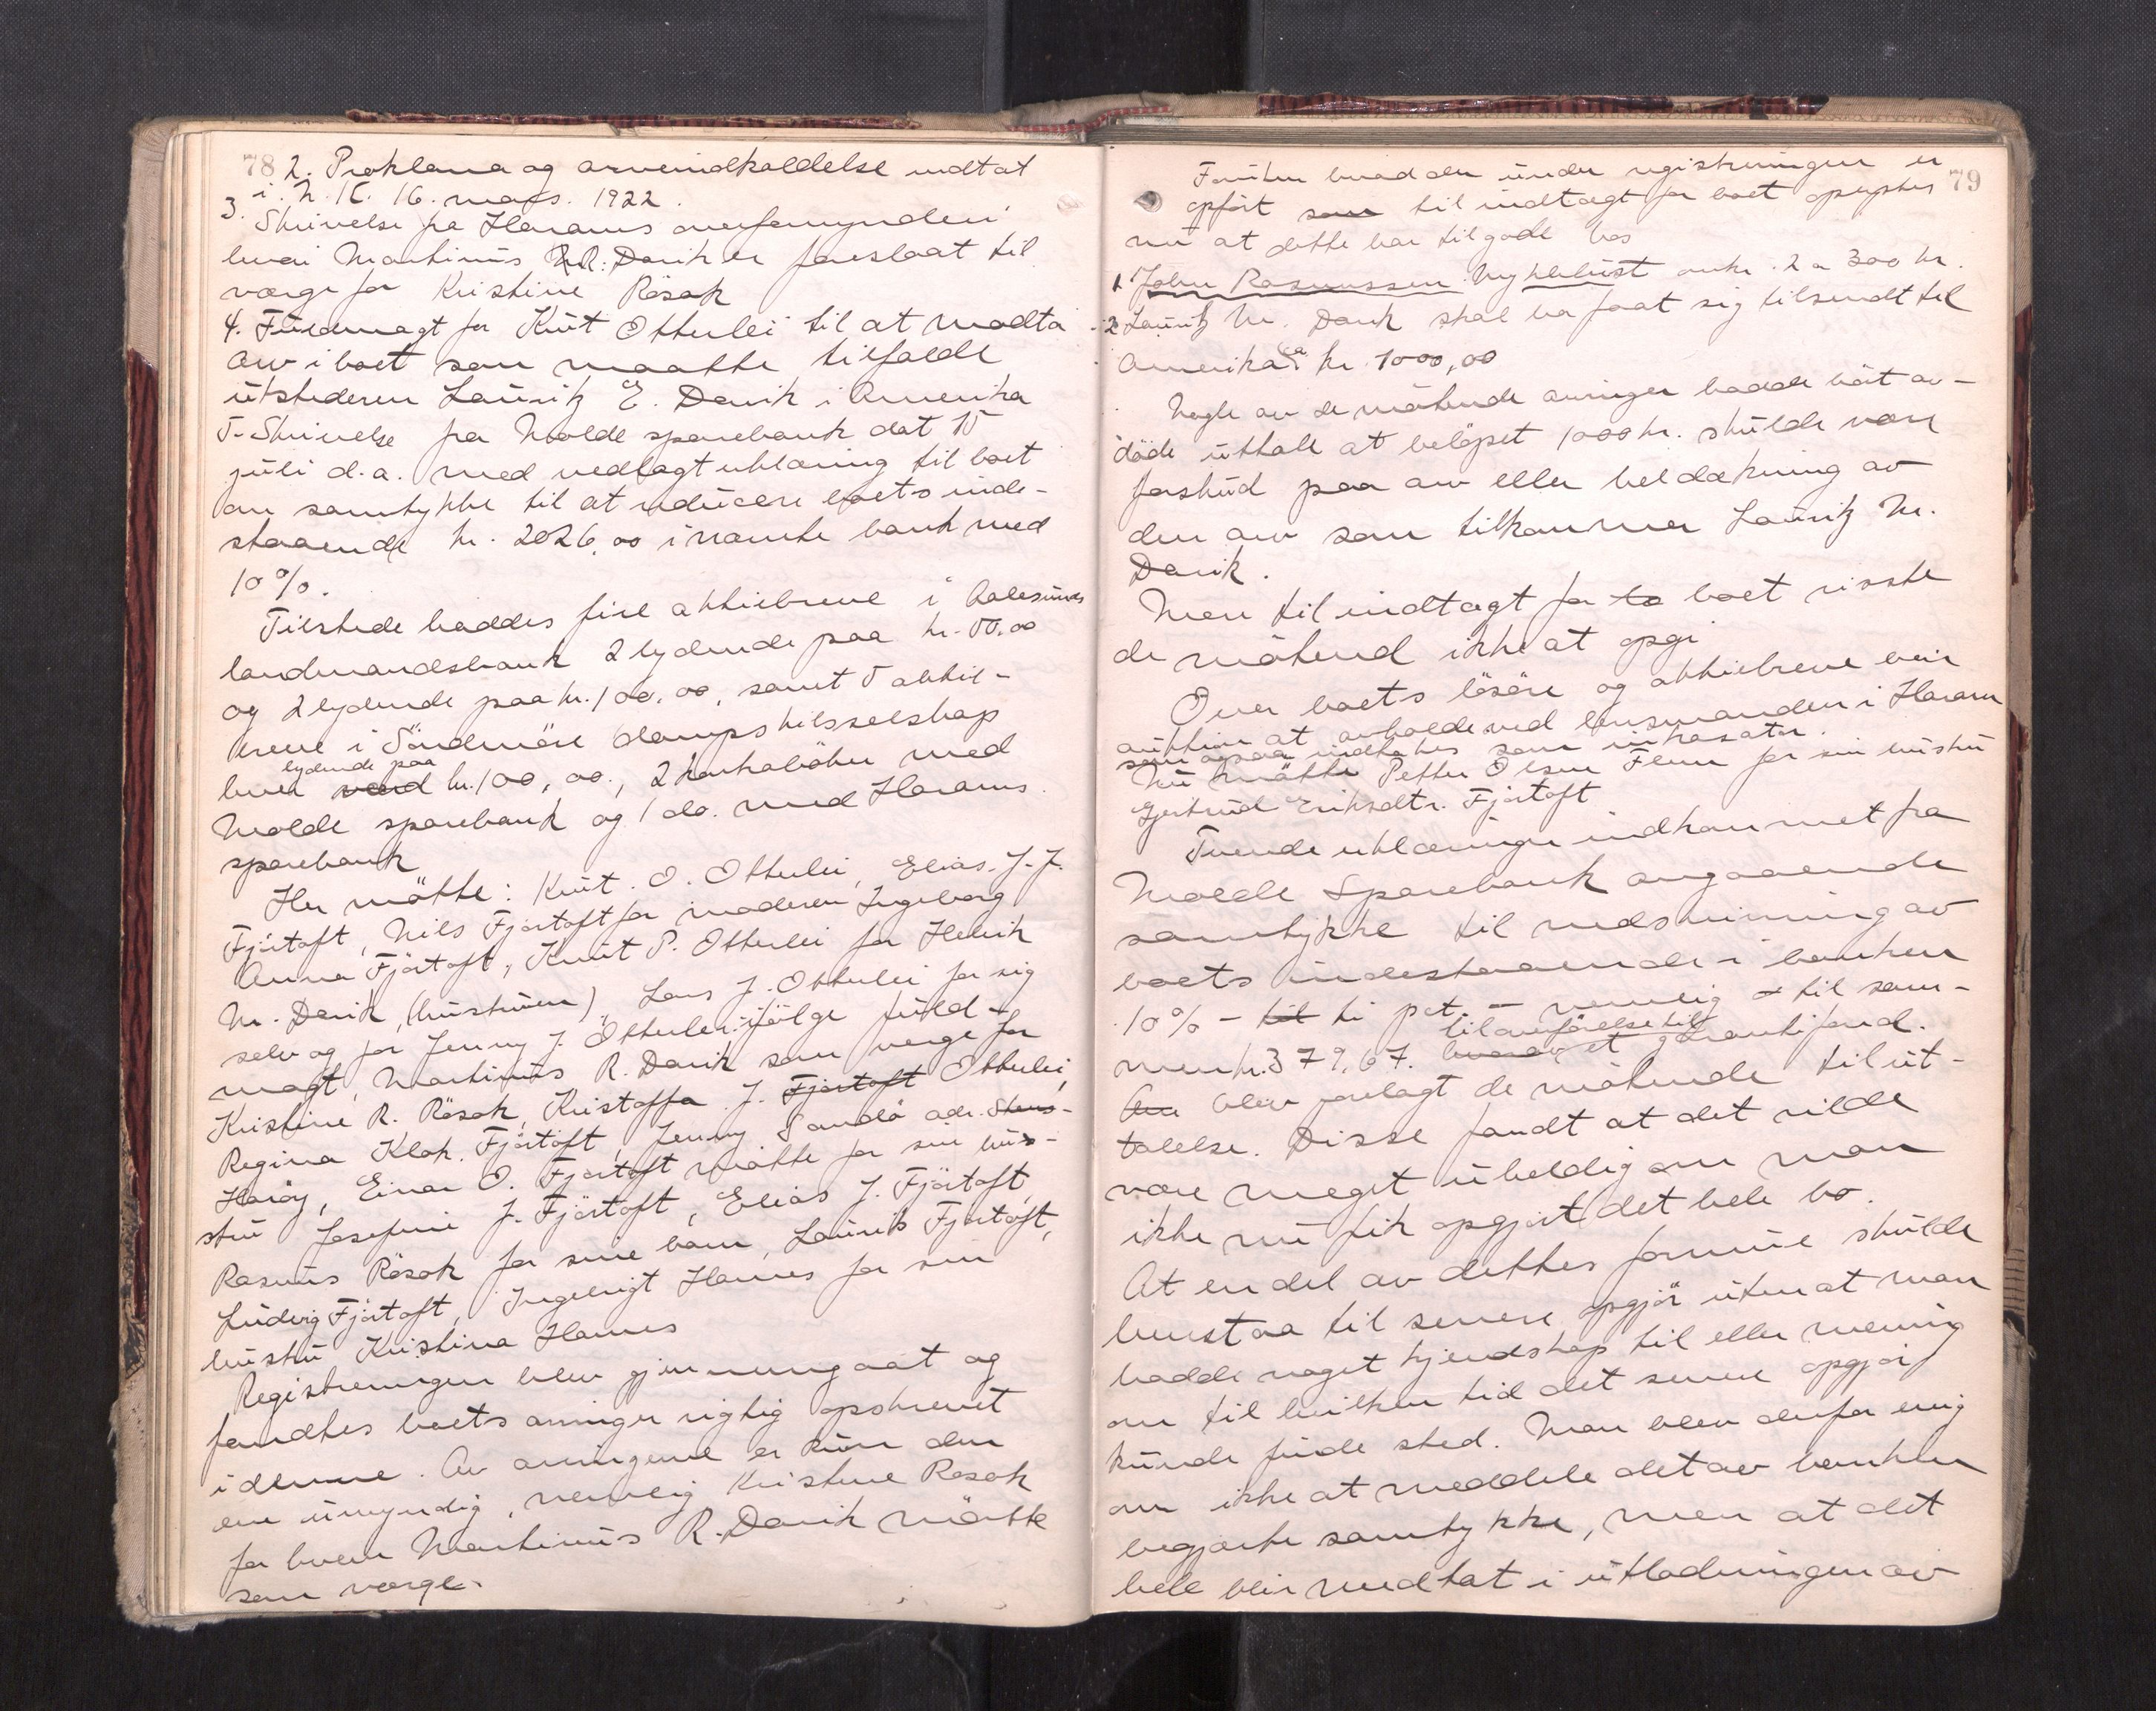 78 2. Proklama og arveindkaldelse indtat
i N. K. 16. mars. 1922.
3. Skrivelse fra Harams overformynderi
hvori Martinus R. Davik er foreslaat til
værge for Kristine Røsok
4. Fuldmagt for Knut Otterlei til at modta
arv i boet som maatte tilfalde
utstederen Lauritz E. Davik i Amerika
5. Skrivelse fra Molde sparebank dat 15
juli d.a. med vedlagt erklæring til boet
om samtykke til at reducere boets inde-
staaende kr. 2026,00 i nævnte bank med
10 %.
Tilstede haddes fire aktiebreve i Aalesunds
landmandsbank 2 lydende paa kr. 50,00
og 2 lydende paa kr. 100,00, samt 5 aktie-
breve i Söndmöre dampskibsselskap
lydende paa
hver værd kr. 100,00, 2 kontraböker med
Molde sparebank og 1 do. med Harams
sparebank
Her mötte: Knut O. Otterlei, Elias J. J.
Fjörtoft, Nils Fjörtoft for moderen Ingeborg
Anna Fjörtoft, Knut P. Otterlei for Henrik
M. Davik, (hustruen), Lars J. Otterlei for sig
selv og for Jenny J. Otterlei ifölge fuld-
magt, Martinus R. Davik som verge for
Kristine R. Rösok, Kristoffa J. Fjørtoft Otterlei,
Regina Klok. Fjörtoft, Jenny Sandö adr. Stens-
Haröy, Einar O. Fjørtoft mötte for sin hus-
tru Josefine J. Fjörtoft, Elias J. Fjörtoft,
Rasmus Rösok for sine barn, Laurits Fjørtoft,
Ludvig Fjörtoft, Ingebrigt Hames for sin
hustru Kristina Hames
Registreringen blev gjennemgaat og
fandtes boets arvinger rigtig opskrevet
i denne. Av arvingene er kun den
ene umyndig, nemlig Kristine Rösok
for hvem Martinus R. Davik mötte
som værge.
79
Foruten hvad der under registreringen er
opfört som til indtægt for boet oplystes
nu at dette har tilgode hos
1. John Rasmussen Myklebust omkr. 2 a 300 kr.
2. Lauritz M. Davik skal ha faat sig tilsendt til
Amerika ca kr. 1000,00
Nogle av de mötende arvinger hadde hört av-
döde uttale at belöpet 1000 kr. skulde være
forskud paa arv eller heldækning av
den arv som tilkommer Lauritz M.
Davik.
Men til indtægt for to boet visste
de mötend ikke at opgi
Over boets lösöre og aktiebreve blir
auktion at avholde ved lensmanden i Haram
som ogsaa indtages som inkasator.
Nu mötte Petter Olsen Flem for sin hustru
Gjertrud Eriksdtr. Fjörtoft
Tvende erklæringer indkommet fra
Molde Sparebank angaaende
samtykke til nedskrivning av
boets indestaaende i banken
10 % – til ti pct. – nemlig til sam-
til overförelse til
men kr. 379,67. hvorav et garantifond.
blev forelagt de mötende til ut-
talelse. Disse fandt at det vilde
være meget uheldig om man
ikke nu fik opgjort det hele bo.
At en del av dettes formue skulde
henstaa til senere opgjör uten at man
hadde noget kjendskap til eller mening
om til hvilken tid det senere opgjör
kunde finde sted. Man blev derfor enig
om ikke at meddele det av banken
begjærte samtykke, men at det
hele blir medtat i utlodningen av